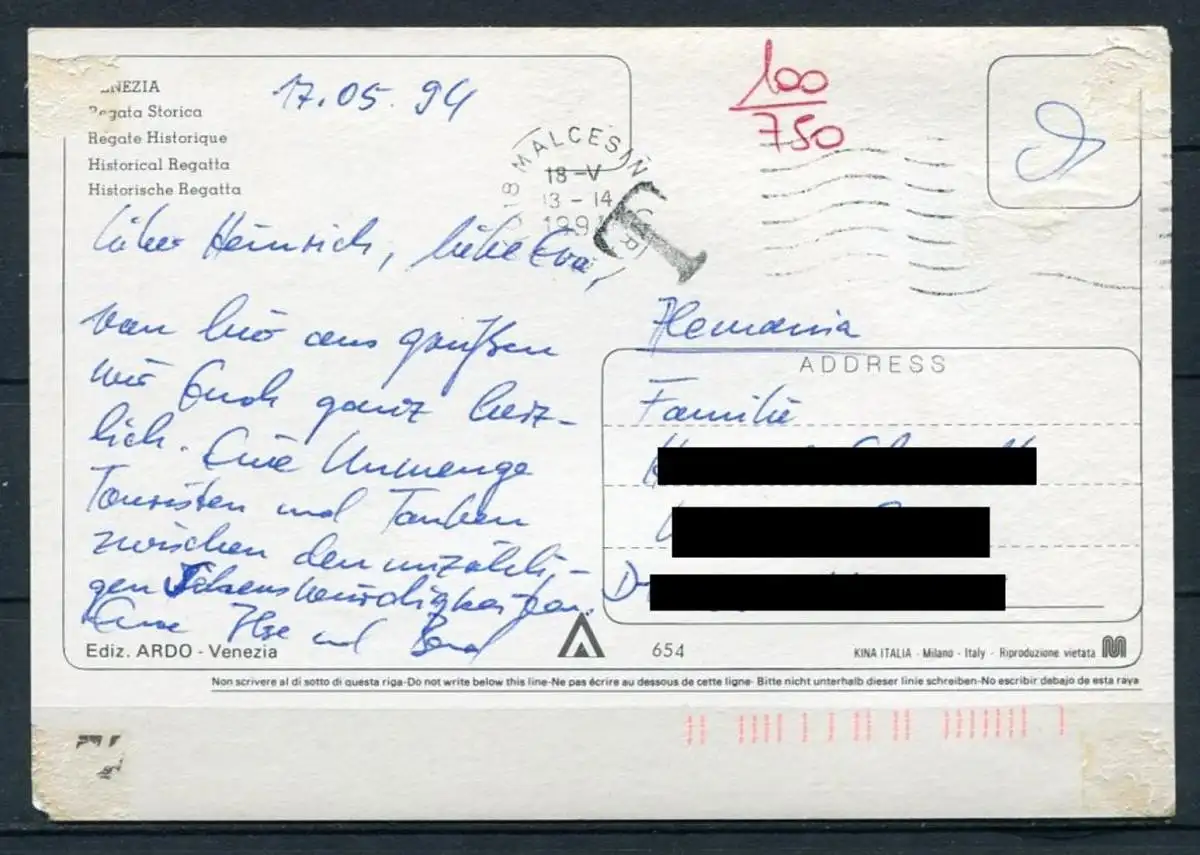 VENEZIA
Regata Storica
Regate Historique
Historical Regatta
Historische Regatta
17.05.94
100
750
MALCESIN
18-V
13-14
199
T
Lieber Heinrich, liebe Eva,
von hier aus grüßen
wir Euch ganz herz-
lich. Eine Unmenge
Touristen und Tauben
zwischen den unzähli-
gen Sehenswürdigkeiten.
Eure Ilse und
ADDRESS
Familie
Ediz. ARDO - Venezia
654
KINA ITALIA - Milano - Italy - Riproduzione vietata
Non scrivere al di sotto di questa riga-Do not write below this line-Ne pas écrire au dessous de cette ligne- Bitte nicht unterhalb dieser linie schreiben-No escribir debajo de esta raya